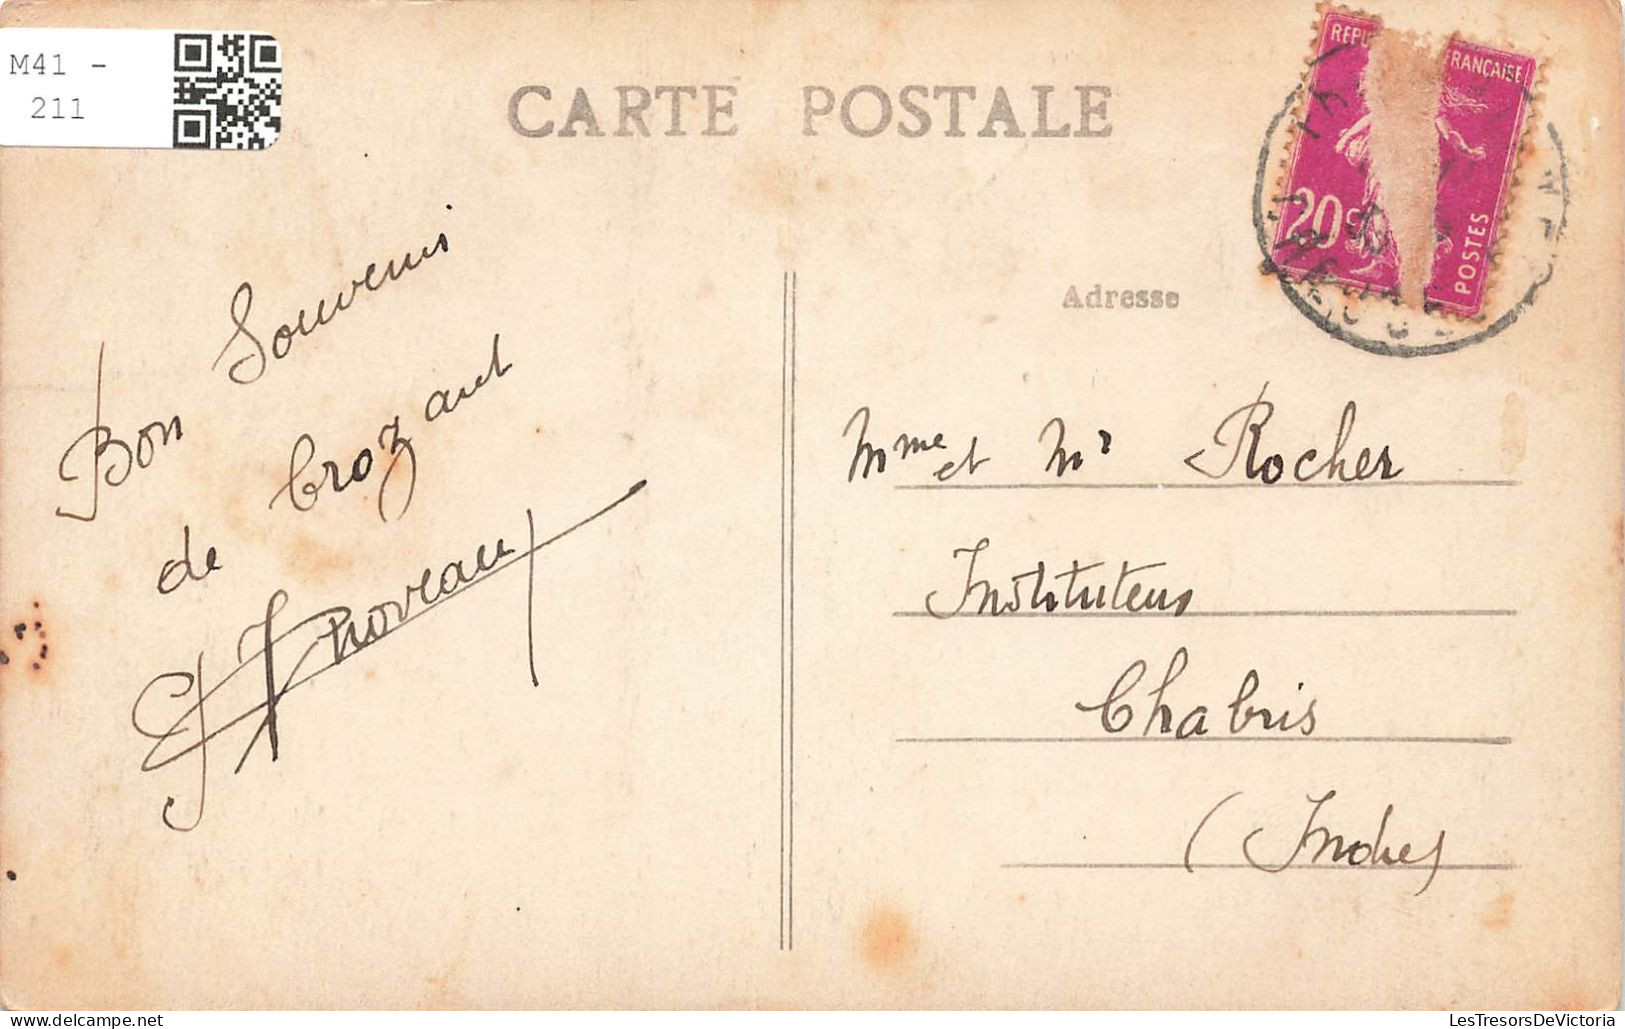 M41 -
211
CARTE POSTALE
REPU FRANÇAISE
20c
POSTES
Adresse
Bon Souvenir
de Crozant
Mme et Mr Rocher
Instituteurs
Chabris
(Indre)
LesTresorsDeVictoria